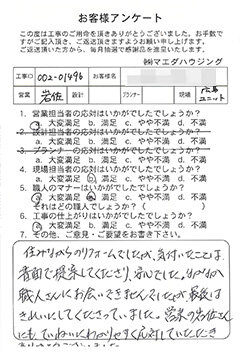 お客様アンケート
この度は工事のご用命を頂きありがとうございました。お手数で
すがご記入頂き、ご返送頂きますようお願い申し上げます。
ご返送頂いた方から、毎月抽選で感謝品を進呈いたします。
㈱マエダハウジング
工事ID 002-01496 お客様名
営業 岩佐 設計 プランナー 現場 広島ユニット
1. 営業担当者の応対はいかがでしたでしょうか?
a. 大変満足 b. 満足 c. やや不満 d. 不満
2. 設計担当者の応対はいかがでしたでしょうか?
a. 大変満足 b. 満足 c. やや不満 d. 不満
3. プランナーの応対はいかがでしたでしょうか?
a. 大変満足 b. 満足 c. やや不満 d. 不満
4. 現場担当者の応対はいかがでしたでしょうか?
a. 大変満足 b. 満足 c. やや不満 d. 不満
5. 職人のマナーはいかがでしたでしょうか?
a. 大変満足 b. 満足 c. やや不満 d. 不満
それはどの職人でしょうか?( )
6. 工事の仕上がりはいかがでしたでしょうか?
a. 大変満足 b. 満足 c. やや不満 d. 不満
7. その他、ご意見・ご要望をお書き下さい。
住みながらのリフォームでしたが、気付いたことは
書面で提案してくださり、安心でした。なかなか
職人さんにお会いできませんでしたが最後は
きれいにしてくださっていました。営業の岩佐さん
にも、ていねいにわかりやすく応対していただき
ありがとうございました。